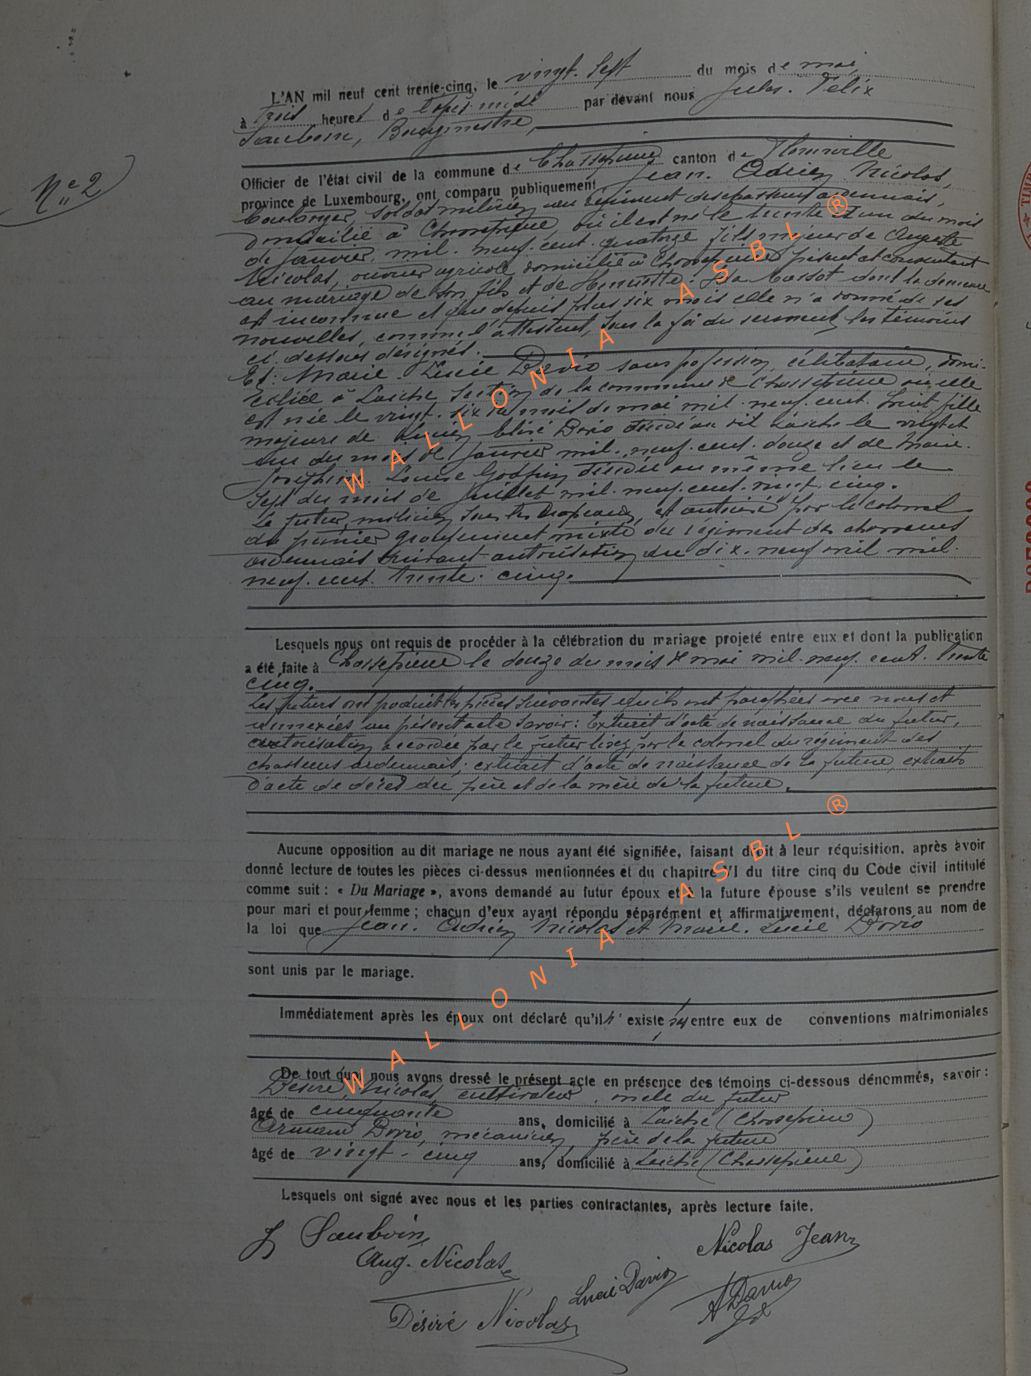 L'AN mil neuf cent trente-cinq, le vingt-sept du mois de mai
à trois heures de l'après-midi par devant nous Jules Félix
Sauboin, Bourgmestre,
Officier de l'état civil de la commune de Chassepierre canton de
province de Luxembourg, ont comparu publiquement Jean Adrien Nicolas,
N° 2
boulanger, soldat milicien au régiment des chasseurs ardennais,
domicilié à Chassepierre, où il est né le trente et un du mois
de janvier mil neuf cent quatorze fils mineur de Auguste
Nicolas, ouvrier agricole domicilié à Chassepierre présent et consentant
au mariage de son fils et de Henriette dont la demeure
est inconnue et que depuis plus six mois elle n'a donné de ses
nouvelles, comme l'attestent, sous la foi du serment, les témoins
ci-dessous désignés.
Et: Marie Lucie Dario sans profession, célibataire, domi-
ciliée à Laiche, section de la commune de Chassepierre où elle
est née le vingt-six du mois de mai mil neuf cent huit fille
majeure de Dario décédé au dit Laiche le vingt et
un du mois de janvier mil neuf cent douze et de Marie
Joséphine Louise Godfrin décédée au même lieu le
sept du mois de juillet mil neuf cent neuf cinq.
Le futur, milicien sous les drapeaux, est autorisé par le colonel
du premier groupement mixte du régiment des chasseurs
ardennais suivant autorisation du dix-neuf mil
neuf cent trente-cinq.
Lesquels nous ont requis de procéder à la célébration du mariage projeté entre eux et dont la publication
a été faite à Chassepierre le douze du mois de mai mil neuf cent trente
cinq.
Les futurs ont produit les pièces suivantes qu'ils ont paraphées avec nous et
annexées au présent acte savoir: Extrait d'acte de naissance du futur,
autorisation accordée par le colonel du régiment des
chasseurs ardennais; extrait d'acte de naissance de la future, extraits
d'acte de décès du père et de la mère de la future.
Aucune opposition au dit mariage ne nous ayant été signifiée, faisant droit à leur réquisition, après avoir
donné lecture de toutes les pièces ci-dessus mentionnées et du chapitre VI du titre cinq du Code civil intitulé
comme suit : « Du Mariage », avons demandé au futur époux et à la future épouse s'ils veulent se prendre
pour mari et pour femme ; chacun d'eux ayant répondu séparément et affirmativement, déclarons au nom de
la loi que Jean Adrien Nicolas et Marie Lucie Dario
sont unis par le mariage.
Immédiatement après les époux ont déclaré qu'il n'existe pas entre eux de conventions matrimoniales
De tout quoi nous avons dressé le présent acte en présence des témoins ci-dessous dénommés, savoir :
Désiré Nicolas, cultivateur, oncle du futur
âgé de cinquante ans, domicilié à Laiche (Chassepierre)
Armand Dario, mécanicien, frère de la future
âgé de vingt-cinq ans, domicilié à Laiche (Chassepierre)
Lesquels ont signé avec nous et les parties contractantes, après lecture faite.
J Sauboin
Nicolas Jean
Aug. Nicolas
Lucie Dario
A Dario
Désiré Nicolas
WALLONIA ASBL ®
WALLONIA ASBL ®